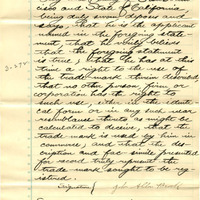 cisco and State of California
being duly sworn deposes and
says, that he is the applicant
named in the foregoing state-
ment, that he verily believes
that the foregoing statement
is true; that he has at this
time a right to the use of
the trade mark therein described
that no other person, firm or
corporation has the right to
such use, either in the identi-
cal form or in any such near
resemblance thereto as might be
calculated to deceive, that the
trade mark is used by him in
commerce, and that the des-
cription and fac simile presented
for record truly represent the
trade mark sought to be reg-
istered.